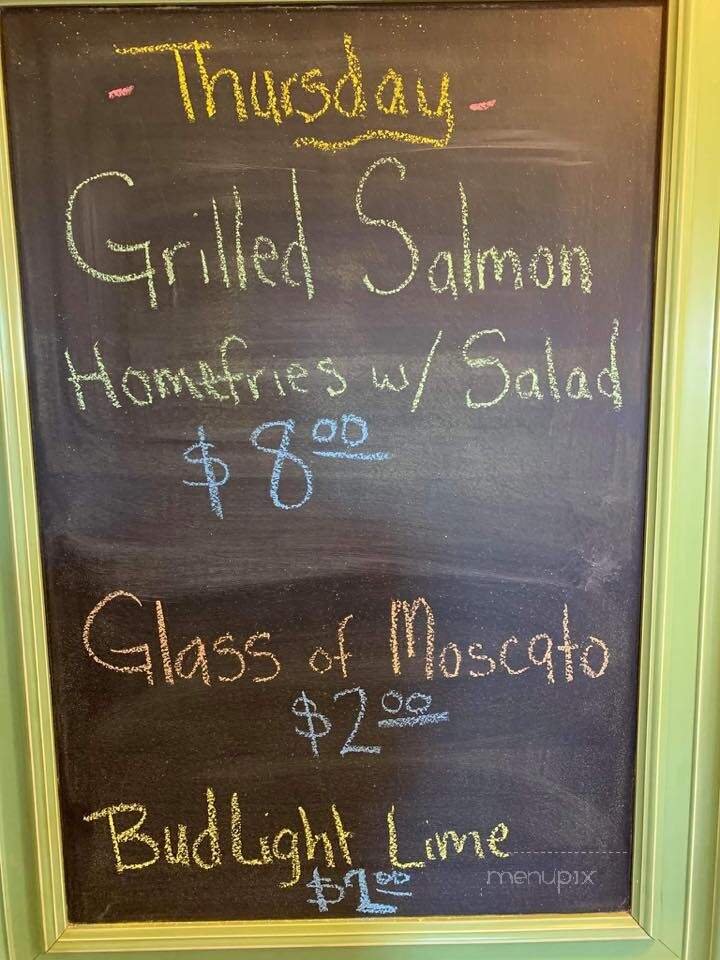 - Thursday -
Grilled Salmon
Homefries w/ Salad
$8.00
Glass of Moscato
$2.00
Bud Light Lime
menupix